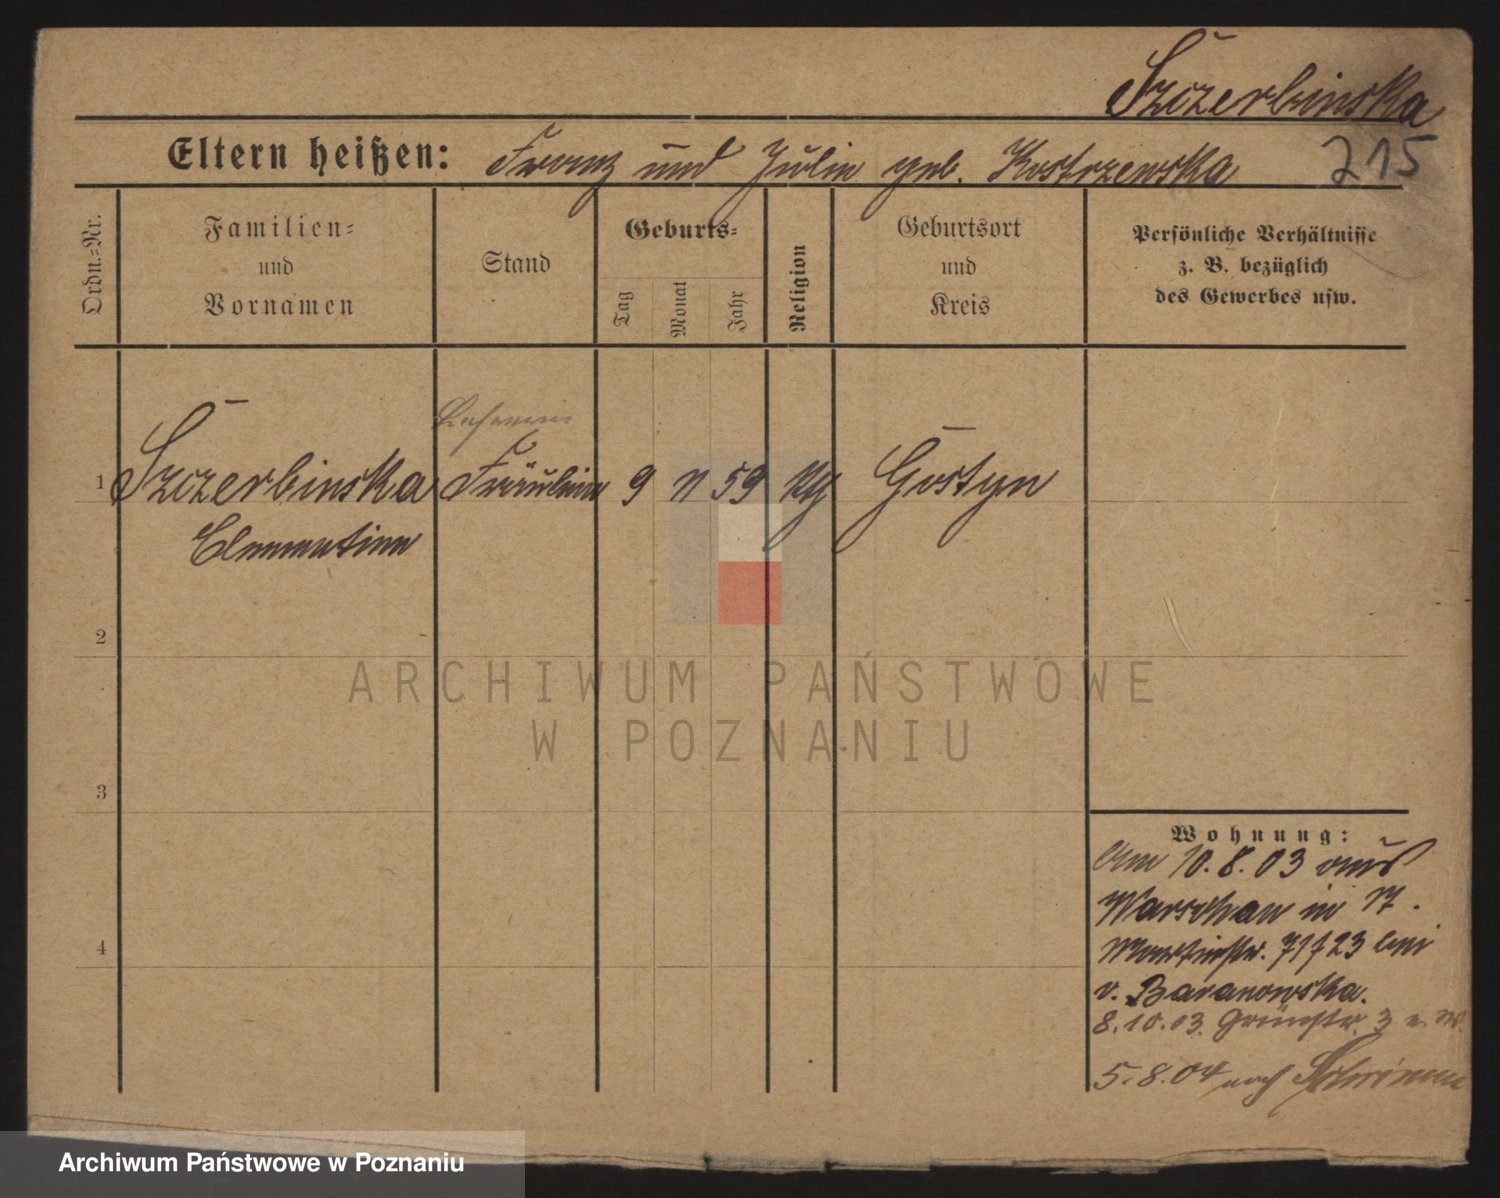 Szczerbinska
Eltern heißen: Franz und Julie geb. Kostrzewska
215
Ordn.=Nr.
Familien=
und
Vornamen
Stand
Geburts=
Tag
Monat
Jahr
Religion
Geburtsort
und
Kreis
Persönliche Verhältnisse
z. B. bezüglich
des Gewerbes usw.
Lehrerin
1 Szczerbinska Fräulein 9 11 59 kg Gostyn
Clementine
2
3
4
ARCHIWUM PAŃSTWOWE
W POZNANIU
Wohnung:
Am 10.8.03 aus
Warschau in
Martinstr. bei
v. Baranowska.
8.10.03. Grünstr. 3
5.8.04 nach
Archiwum Państwowe w Poznaniu